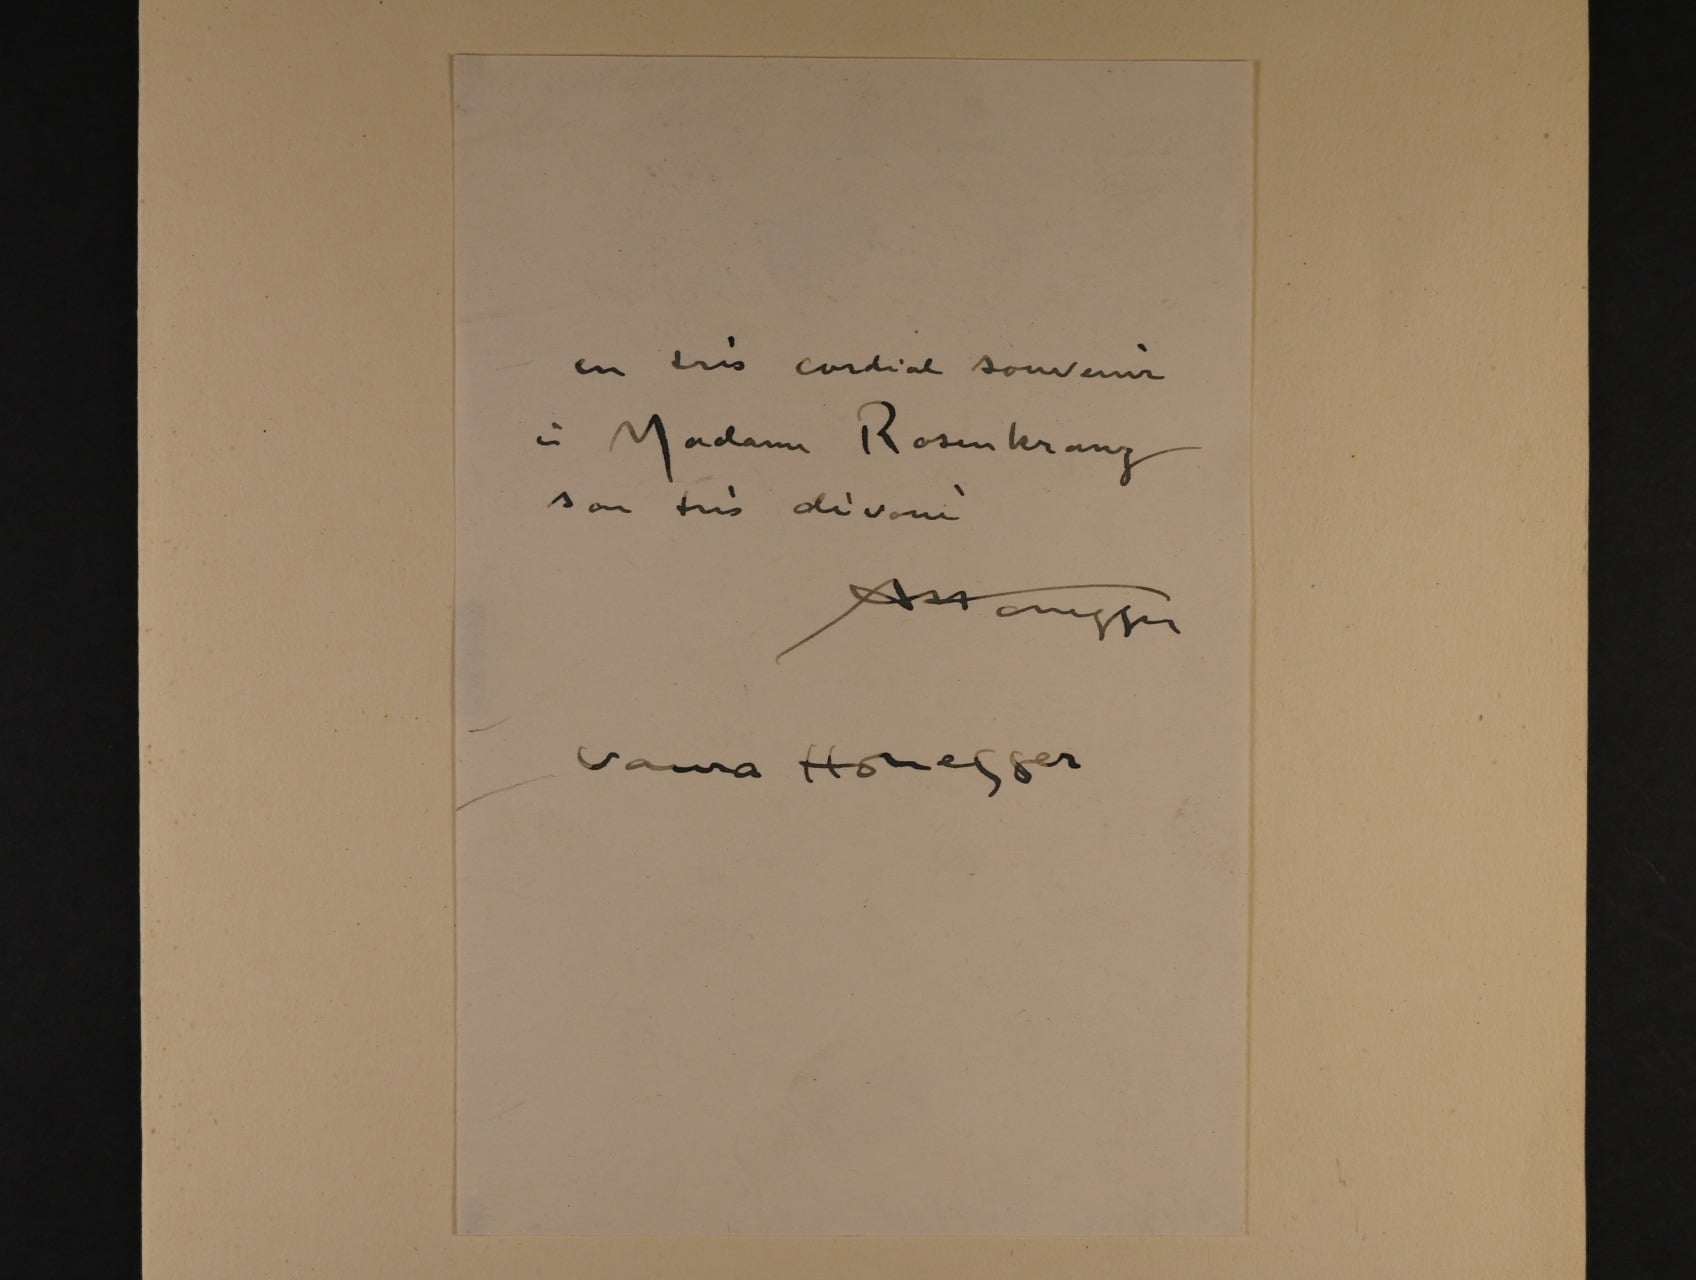 en très cordial souvenir
à Madame Rosenkranz
son très dévoué
AHonegger
Vaura Honegger